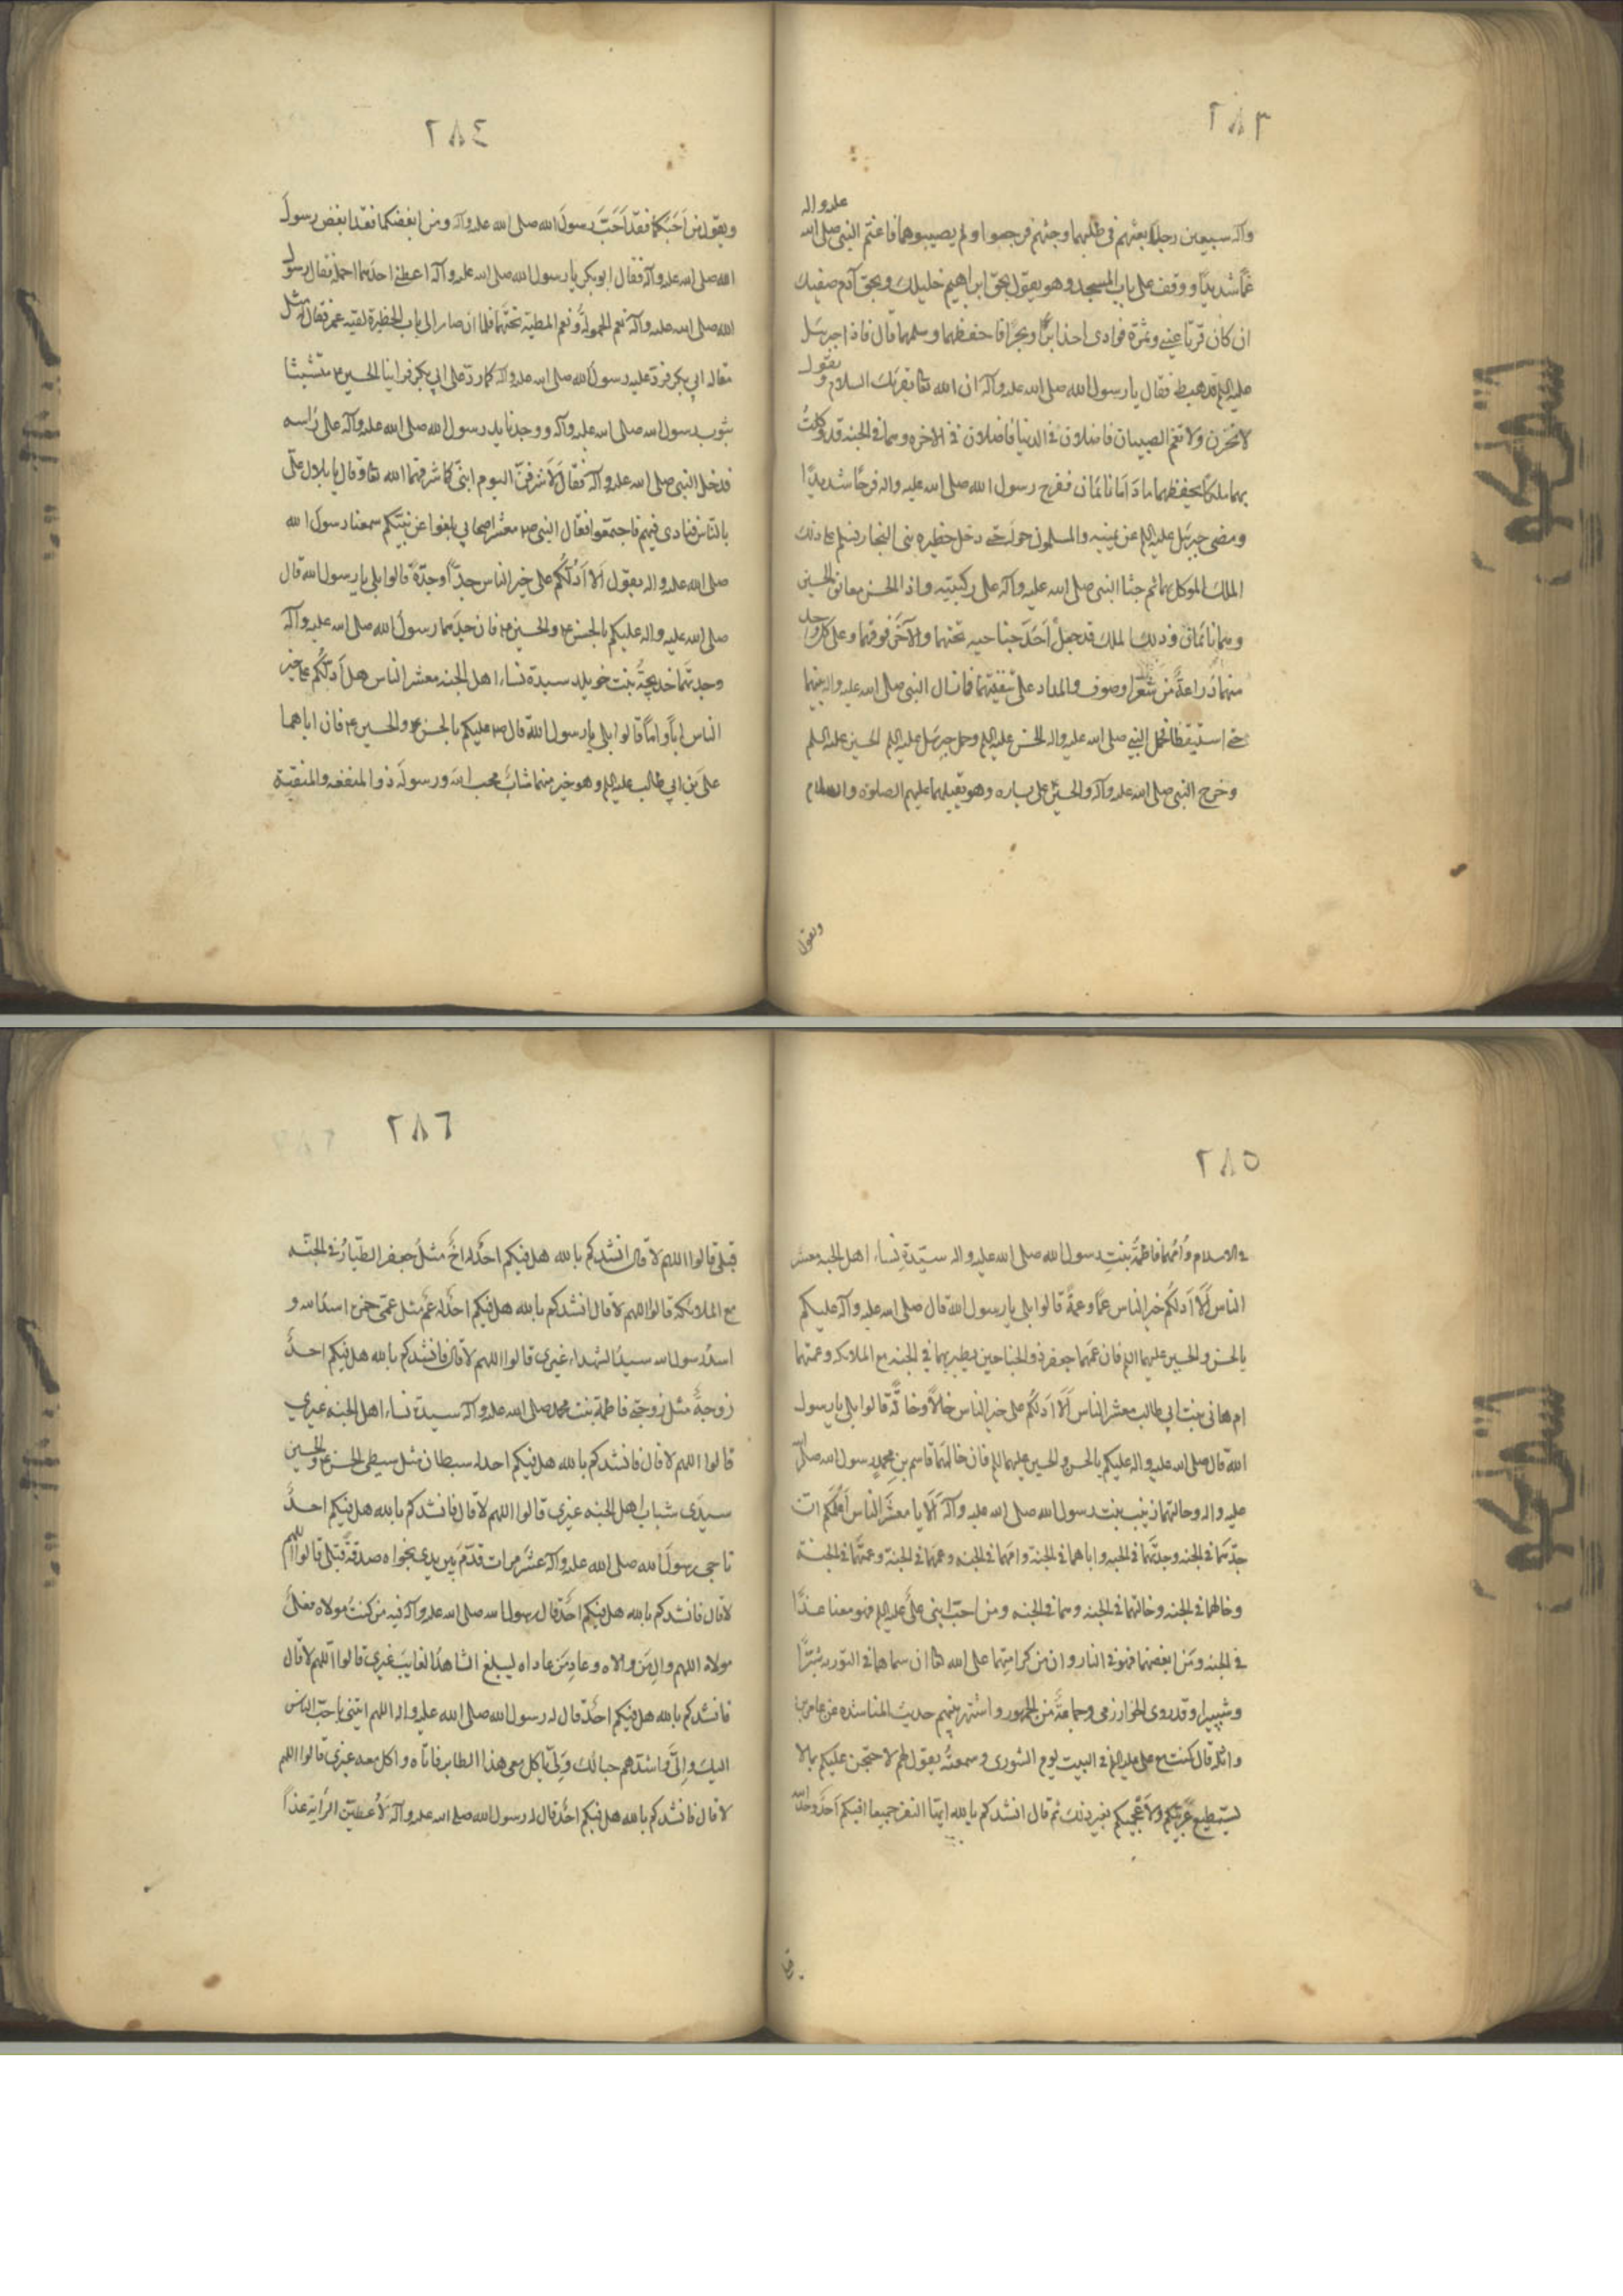 ٢٨٣
علیه واله
وآله سبعین رجلا بعثهم فی طلبهما وجثهم فرجعوا ولم یصیبوهما فاغتم النبی صلی الله
غمًا شدیدًا ووقف علی باب المسجد وهو یقول بحق ابراهیم خلیلك وبحق آدم صفیك
ان کان قرتا عینی وثمرة فوادی اخذا برًّا وبحرًا فاحفظهما وسلمهما قال فاذا جبرئیل
علیه السلم قد هبط فقال یا رسول الله صلی الله علیه وآله ان الله تعا یقرئك السلام ویقول
لا تحزن ولا تغتم الصبیان فاضلان فی الدنیا فاضلان فی الاخره وهما فی الجنه قد وکلتُ
بهما ملکًا یحفظهما ما دَامَا نائمان ففرح رسول الله صلی الله علیه واله فرحًا شدیدًا
ومضی جبرئیل علیه السلم عن یمینه والمسلمون حوله حتی دخل حظیره بنی النجار فسلم علی ذلك
الملك الموکل بهما ثم جثا النبی صلی الله علیه وآله علی رکبتیه واذا الحسن معانق الحسین
وهما نائمان وذلك الملك قد جعل اَحَدَ جناحیه تحتهما والآخَر فوقهما وعلی کل واحد
منهما دُرّاعةٌ من شَعْر او صوف والمداد علی شفتیهما فما زال النبی صلی الله علیه واله یلثمهما
حتی استیقظا فحمل النبی صلی الله علیه واله الحسن علیه السلم وحمل جبرئیل علیه السلم الحسین علیه السلم
وخرج النبی صلی الله علیه وآله والحسن علی یساره وهو یقبلهما علیهم الصلوة والسلام
ویقول
٢٨٤
ویقول من اَحَبَّکُمَا فقد اَحَبَّ رسولَ الله صلی الله علیه وآله ومن ابغضکما فقد ابغض رسولَ
الله صلی الله علیه وآله فقال ابوبکر یا رسول الله صلی الله علیه وآله اعطنی احدهما احمله فقال رسول
الله صلی الله علیه وآله نعم الحمولةُ ونعم المطیّة تحتهما فلما ان صار الی باب الحظیرة لقیه عمر فقال له مثل
مقاله ابی بکر فردّ علیه رسول الله صلی الله علیه وآله کما ردّ علی ابی بکر فراینا الحسین ع متشبثا
بثوب رسول الله صلی الله علیه وآله ووجدنا ید رسول الله صلی الله علیه وآله علی رَاسه
فدخل النبی صلی الله علیه وآله فقال لَاُشَرِّفَنَّ الیوم ابنیَّ کما شرفهما الله تعا وقال یا بلال علیّ
بالناس فنادی فیهم فاجتمعوا فقال النبی ص معشر اصحابی بلغوا عن نبیّکم سمعنا رسولَ الله
صلی الله علیه واله یقول اَلا اَدُلّکُم علی خیر الناس جدًّا وجدّةً قالوا بلی یا رسول الله قال
صلی الله علیه واله علیکم بالحسن ع والحسین ع فان جدّهما رسولُ الله صلی الله علیه وآله
وجدتهما خدیجةُ بنت خویلد سیدة نساء اهل الجنه معشر الناس هل اَدلّکُم علی خیر
الناس ابًا وامًّا قالوا بلی یا رسول الله قال ص علیکم بالحسن ع والحسین ع فان اباهما
علیَّ بنَ ابی طالب علیه السلم وهو خیر منهما شابٌّ محب الله ورسولَه ذو المنفعه والمنقبة
٢٨٥
فی الاسلام واُمّهما فاطمةُ بنتِ رسول الله صلی الله علیه واله سیّدةِ نساء اهل الجنه معشر
الناس اَلَا اَدلکُم خیر الناس عمًّا وعمةً قالوا بلی یا رسول الله قال صلی الله علیه وآله علیکم
بالحسن والحسین علیهما السلم فان عمّهما جعفر ذو الجناحین یطیر بهما فی الجنه مع الملائکه وعمتهما
ام هانی بنت ابی طالب معشر الناس اَلَا اَدلّکُم علی خیر الناس خالًا وخالةً قالوا بلی یا رسول
الله قال صلی الله علیه واله علیکم بالحسن والحسین علیهما السلم فان خالهما قاسم بن محمدٍ رسول الله صلی الله
علیه واله وخالتهما زینب بنت رسول الله صلی الله علیه وآله اَلَا یا معشَرَ الناس اُعلمُکُم اَنّ
جدّهما فی الجنه وجدتهما فی الجنه واباهما فی الجنة وامّهما فی الجنه وعمهما فی الجنة وعمتهما فی الجنة
وخالهما فی الجنه وخالتهما فی الجنه وهما فی الجنه ومن احبّ ابنی علیٍّ علیه السلم فهو معنا غدًا
فی الجنه ومَن ابغضهما فهو فی النار وان من کرامتهما علی الله تعا ان سماهما فی التوریه شبّرًا
وشبیرا وقد روی الخوارزمی وجماعةٌ من الجمهور واشتهر بینهم حدیث المناشده عن عامر بن
واثله قال کنت مع علی علیه السلم فی البیت یوم الشوری وسمعتُه یقول لهم لاحتجن علیکم بما لا
یستطیع عَربیّکُم ولا عَجَمِیّکم بغیر ذلك ثم قال انشدکم بالله ایّها النفر جمیعا افیکم اَحَدٌ وحّد الله
٢٨٦
قبلی قالوا اللهم لا قال انشدکم بالله هل فیکم احدٌ له اخٌ مثلُ جعفر الطیّارُ فی الجنّه
مع الملائکة قالوا اللهم لا قال انشدکم بالله هل فیکم احدٌ له عمٌّ مثل عمّی حمزة اسد الله و
اسد رسول الله سید الشهداء غیری قالوا اللهم لا قال فانشدکم بالله هل فیکم احدٌ له
زوجةٌ مثل زوجتی فاطمة بنت محمد صلی الله علیه وآله سیدة نساء اهل الجنه غیری
قالوا اللهم لا قال فانشدکم بالله هل فیکم احد له سبطان مثل سبطی الحسن ع والحسین
سیدَی شباب اهل الجنه غیری قالوا اللهم لا قال فانشدکم بالله هل فیکم احدٌ
ناجی رسولَ الله صلی الله علیه وآله عشر مرات قدّم بین یدی نجواه صدقةً قبلی قالوا اللهم
لا قال فانشدکم بالله هل فیکم احدٌ قال رسول الله صلی الله علیه وآله فیه من کنتُ مولاه فعلیٌّ
مولاه اللهم والِ مَن والاه وعادِ مَن عاداه لیبلغ الشاهدُ الغایبَ غیری قالوا اللهم لا قال
فانشدکم بالله هل فیکم احَدٌ قال له رسول الله صلی الله علیه واله اللهم ایتنی باحبّ الناس
الیك واِلیَّ واشدّهم حبا لك ولی یاکل معی هذا الطایر فاتاه واکل معه غیری قالوا اللهم
لا قال فانشدکم بالله هل فیکم احَدٌ قال له رسول الله صلی الله علیه وآله لَاُعطیَنّ الرایة غدًا